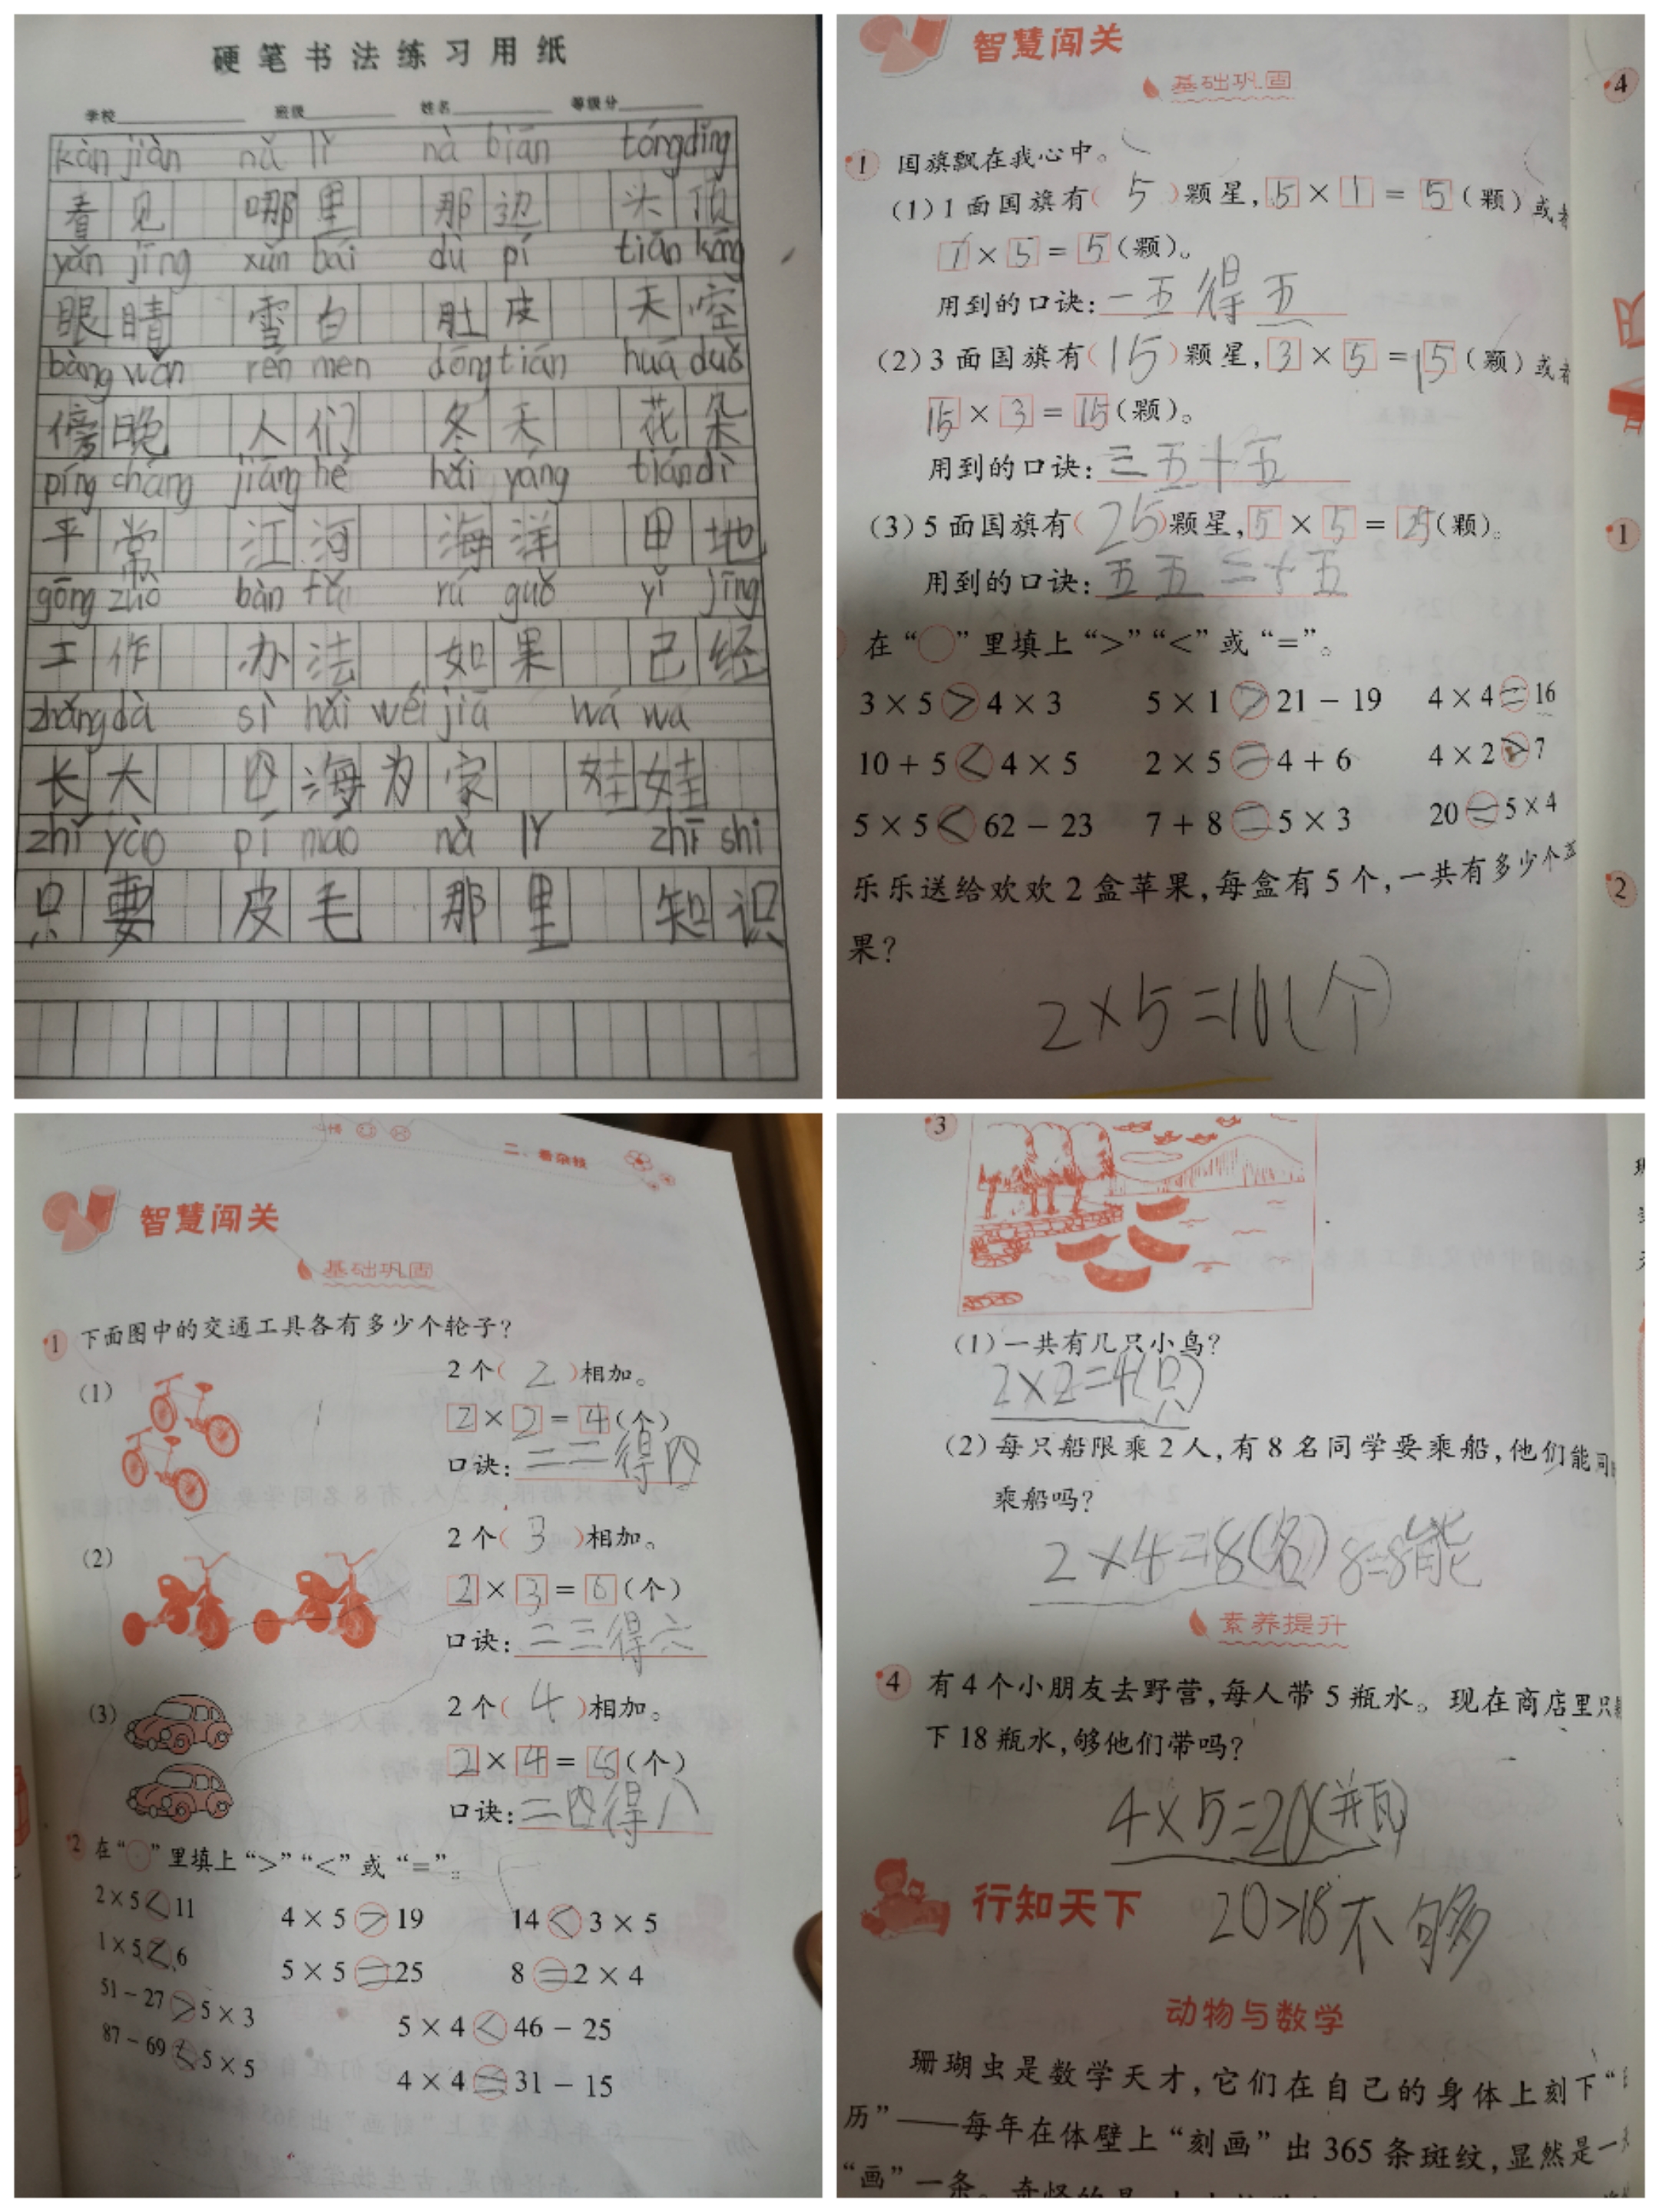 硬笔书法练习用纸
学校 班级 姓名 等级分
kàn jiàn nǎ lǐ nà biān tóng dǐng
看见 哪里 那边 头顶
yǎn jīng xuě bái dù pí tiān kōng
眼睛 雪白 肚皮 天空
bàng wǎn rén men dōng tiān huā duǒ
傍晚 人们 冬天 花朵
píng cháng jiāng hé hǎi yáng tián dì
平常 江河 海洋 田地
gōng zuò bàn fǎ rú guǒ yǐ jīng
工作 办法 如果 已经
zhǎng dà sì hǎi wéi jiā wá wa
长大 四海为家 娃娃
zhǐ yào pí máo nà lǐ zhī shi
只要 皮毛 那里 知识
智慧闯关
基础巩固
1 国旗飘在我心中。
(1)1面国旗有(5)颗星,5×1=5(颗)或者
1×5=5(颗)。
用到的口诀:一五得五
(2)3面国旗有(15)颗星,3×5=15(颗)或者
15×3=15(颗)。
用到的口诀:三五十五
(3)5面国旗有(25)颗星,5×5=25(颗)。
用到的口诀:五五二十五
在“○”里填上“>”“<”或“=”。
3×5>4×3 5×1>21-19 4×4=16
10+5<4×5 2×5=4+6 4×2>7
5×5<62-23 7+8=5×3 20=5×4
乐乐送给欢欢2盒苹果,每盒有5个,一共有多少个苹
果?
2×5=10(个)
4
1
2
智慧闯关
基础巩固
1 下面图中的交通工具各有多少个轮子?
(1) 2个(2)相加。
2×2=4(个)
口诀:二二得四
(2) 2个(3)相加。
2×3=6(个)
口诀:二三得六
(3) 2个(4)相加。
2×4=8(个)
口诀:二四得八
2 在“○”里填上“>”“<”或“=”。
2×5<11 4×5>19 14<3×5
1×5<6 5×5=25 8=2×4
51-27>5×3 5×4<46-25
87-69<5×5 4×4=31-15
3
(1)一共有几只小鸟?
2×2=4(只)
(2)每只船限乘2人,有8名同学要乘船,他们能同
乘船吗?
2×4=8(名) 8=8能
素养提升
4 有4个小朋友去野营,每人带5瓶水。现在商店里只
下18瓶水,够他们带吗?
4×5=20(瓶)
20>18不够
行知天下
动物与数学
珊瑚虫是数学天才,它们在自己的身体上刻下“
历”——每年在体壁上“刻画”出365条斑纹,显然是一
“画”一条。奇怪的是